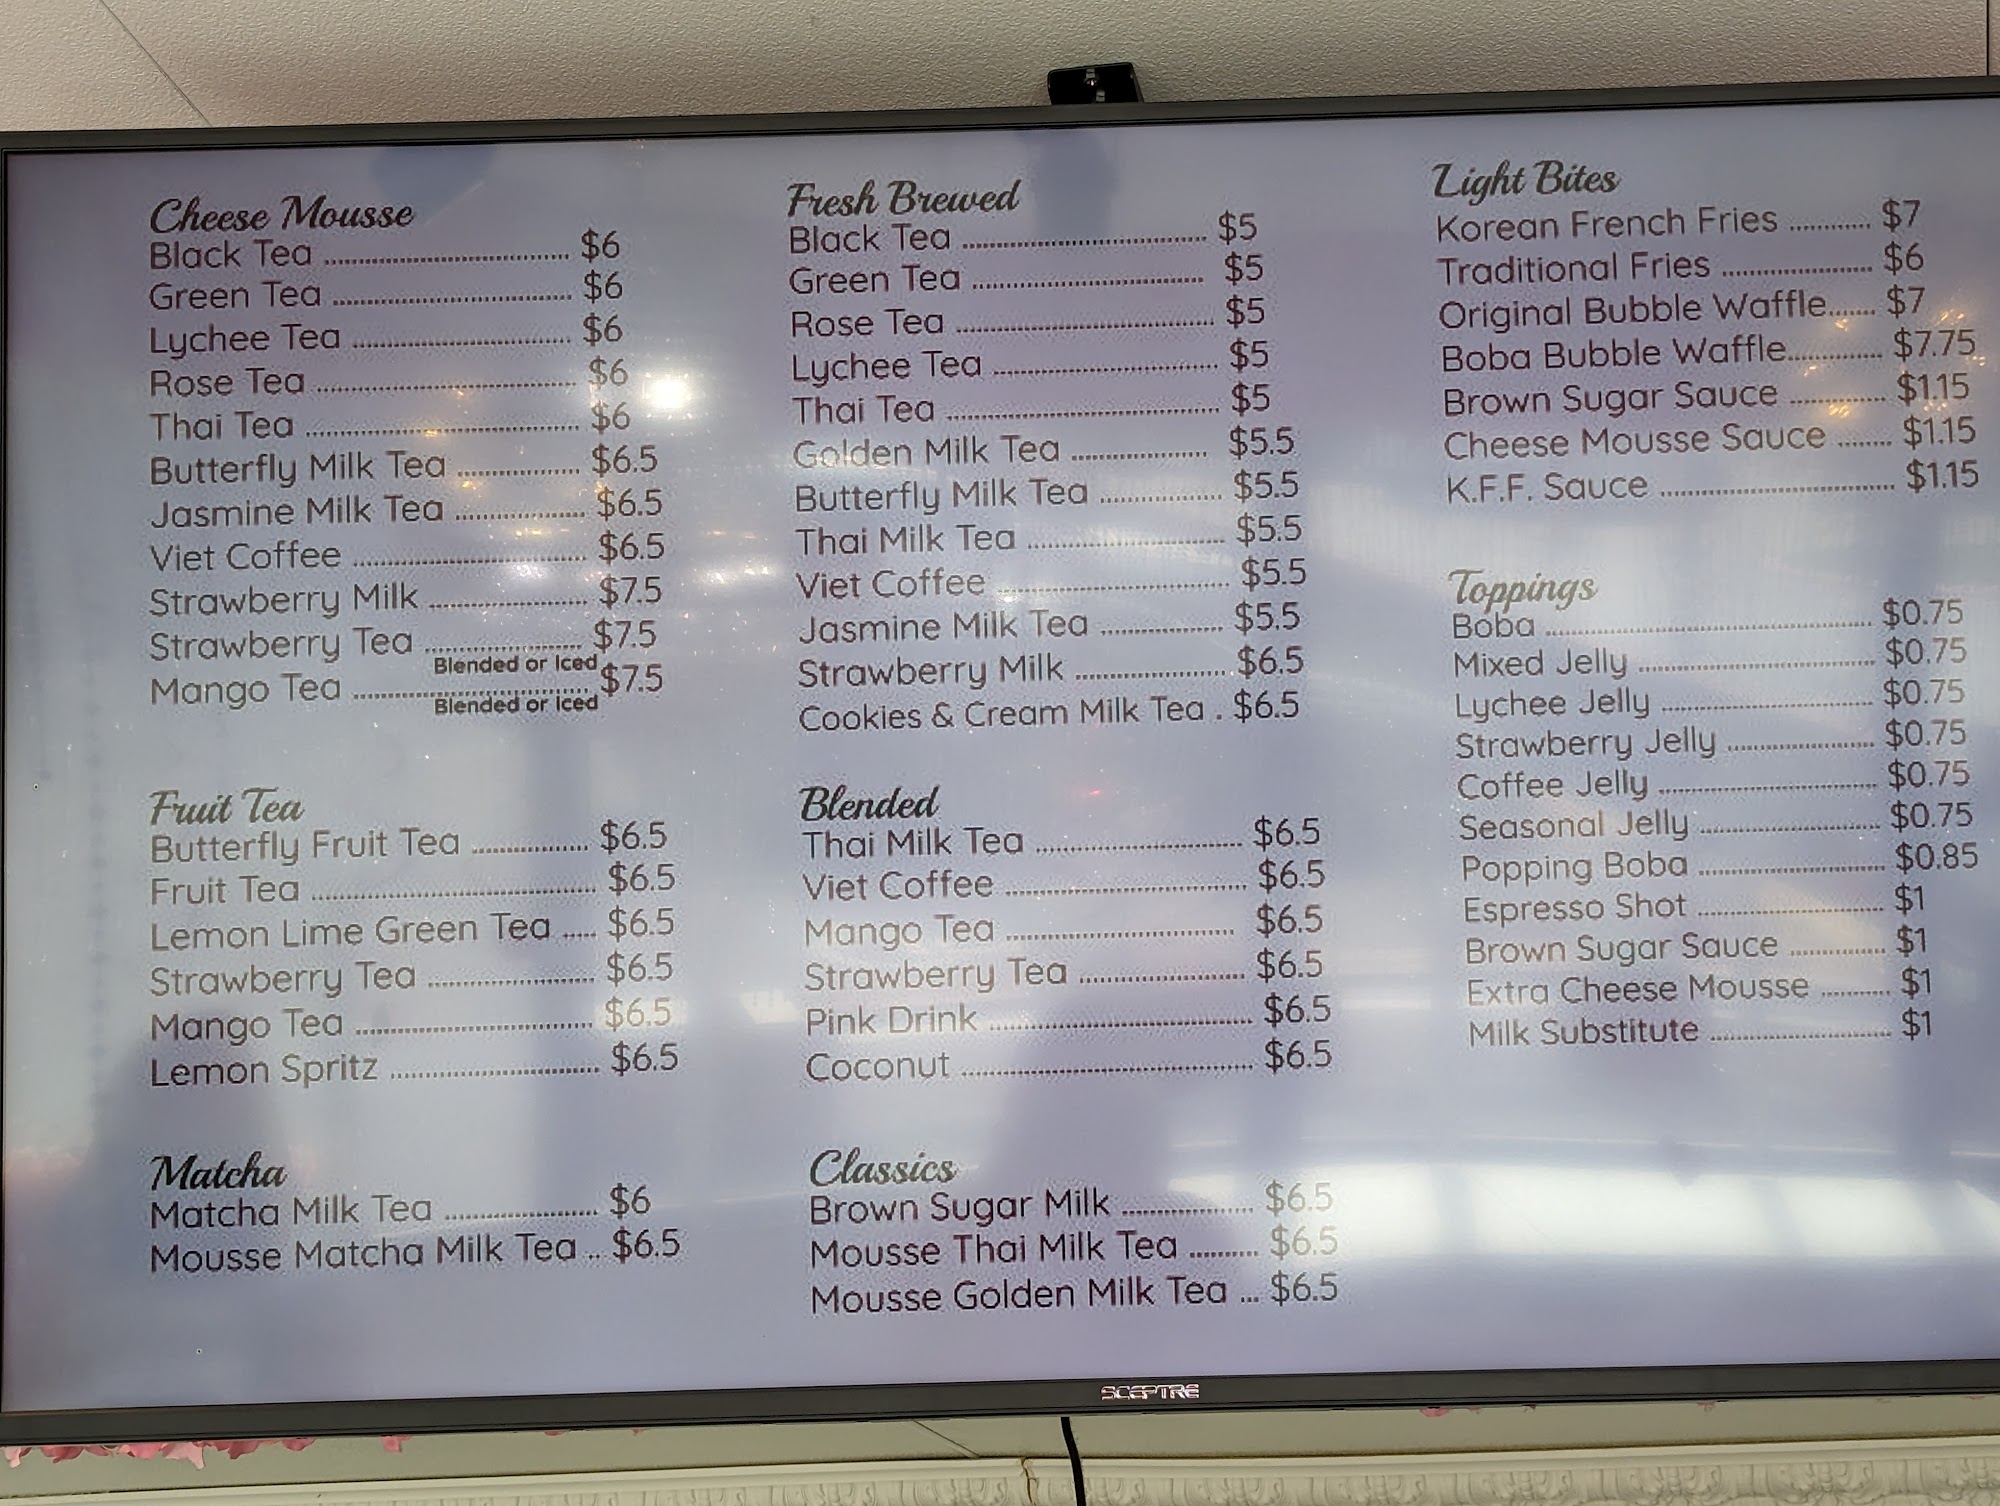 Cheese Mousse
Black Tea ........ $6
Green Tea ........ $6
Lychee Tea ........ $6
Rose Tea ........ $6
Thai Tea ........ $6
Butterfly Milk Tea ........ $6.5
Jasmine Milk Tea ........ $6.5
Viet Coffee ........ $6.5
Strawberry Milk ........ $7.5
Strawberry Tea ........ $7.5
Blended or Iced
Mango Tea ........ $7.5
Blended or Iced
Fruit Tea
Butterfly Fruit Tea ........ $6.5
Fruit Tea ........ $6.5
Lemon Lime Green Tea ..... $6.5
Strawberry Tea ........ $6.5
Mango Tea ........ $6.5
Lemon Spritz ........ $6.5
Matcha
Matcha Milk Tea ........ $6
Mousse Matcha Milk Tea .. $6.5
Fresh Brewed
Black Tea ........ $5
Green Tea ........ $5
Rose Tea ........ $5
Lychee Tea ........ $5
Thai Tea ........ $5
Golden Milk Tea ........ $5.5
Butterfly Milk Tea ........ $5.5
Thai Milk Tea ........ $5.5
Viet Coffee ........ $5.5
Jasmine Milk Tea ........ $5.5
Strawberry Milk ........ $6.5
Cookies & Cream Milk Tea . $6.5
Blended
Thai Milk Tea ........ $6.5
Viet Coffee ........ $6.5
Mango Tea ........ $6.5
Strawberry Tea ........ $6.5
Pink Drink ........ $6.5
Coconut ........ $6.5
Classics
Brown Sugar Milk ........ $6.5
Mousse Thai Milk Tea ........ $6.5
Mousse Golden Milk Tea ... $6.5
Light Bites
Korean French Fries ........ $7
Traditional Fries ........ $6
Original Bubble Waffle....... $7
Boba Bubble Waffle........ $7.75
Brown Sugar Sauce ........ $1.15
Cheese Mousse Sauce ........ $1.15
K.F.F. Sauce ........ $1.15
Toppings
Boba ........ $0.75
Mixed Jelly ........ $0.75
Lychee Jelly ........ $0.75
Strawberry Jelly ........ $0.75
Coffee Jelly ........ $0.75
Seasonal Jelly ........ $0.75
Popping Boba ........ $0.85
Espresso Shot ........ $1
Brown Sugar Sauce ........ $1
Extra Cheese Mousse ........ $1
Milk Substitute ........ $1
SCEPTRE